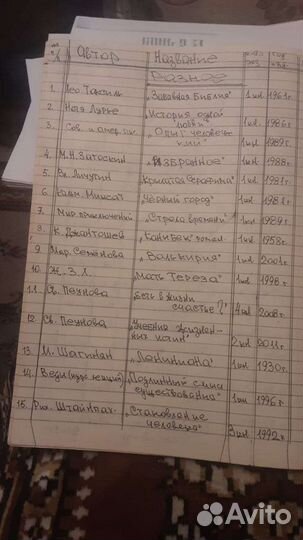 № Автор Название
Разное
1. Лео Таксиль "Забавная Библия" 1 шт 1961г.
2. Ноэл Лурье "История одной любви" 1 шт 1986г.
3. Сов. и амер. "Опыт человеч" 1 шт 1989г.
4. М.Н. Загоскин "Избранное" 1 шт 1988г.
5. Вл. Личутин "Крылатая Серафима" 1 шт 1981г.
6. Кальм. Миксат "Черный город" 1 шт 1981г.
7. Мир приключений "Стрела времени" 1 шт 1989г.
8. К. Джантошев "Каныбек" роман 1 шт 1958г.
9. Мар. Семёнова "Валькирия" 1 шт 2001г.
10. Ж.З.Л. "Мать Тереза" 1 шт 1998г.
11. Св. Пеунова "Есть в жизни
счастье?" 4 шт 2008г.
12. Св. Пеунова "Учебник жизнен-
ных истин" 2 шт 2011г.
13. М. Шагинян "Лениниана" 1 шт 1930г.
14. Веды (курс лекций) "Подлинный смысл
существования" 1 шт 1996г.
15. Рих. Штайнбах. "Становление
человека" 3 шт 1992г.
Avito